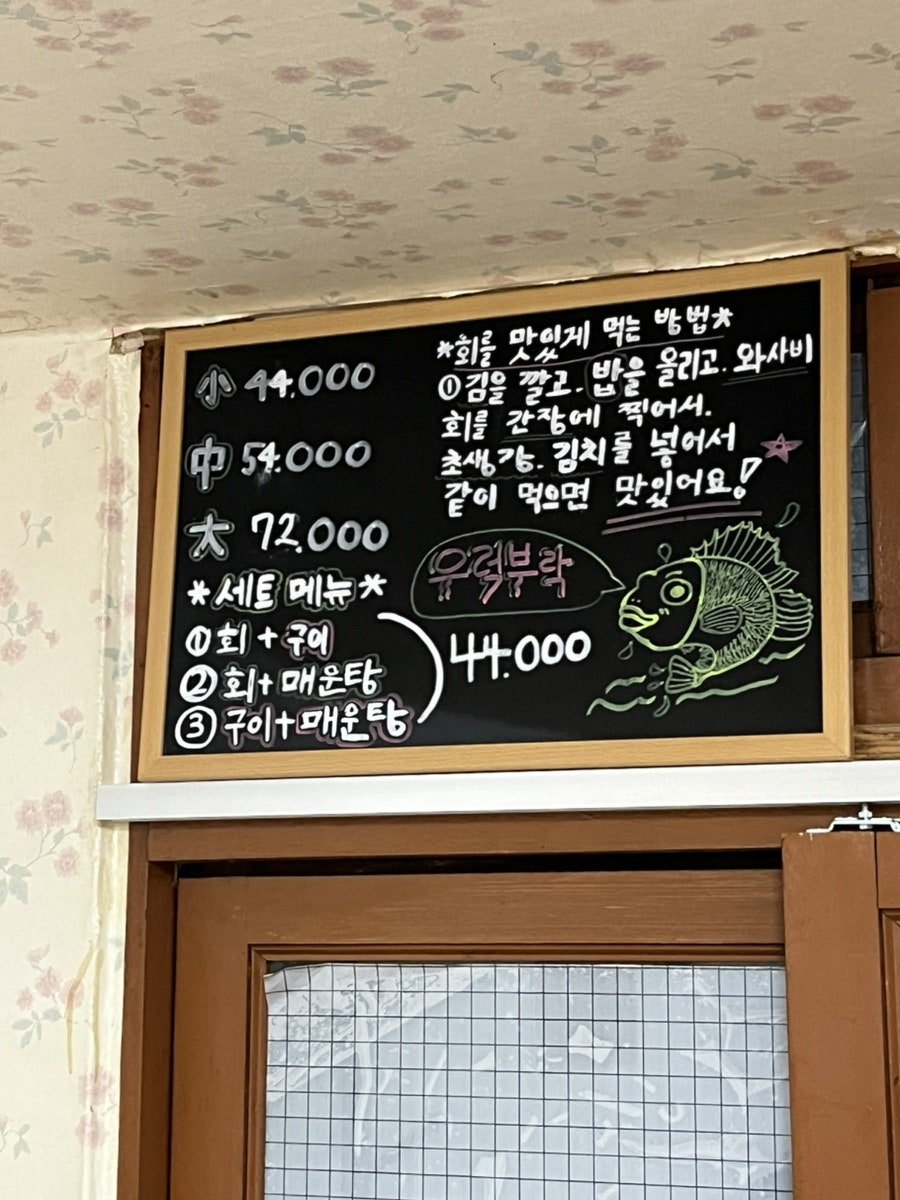 小 44.000
中 54.000
大 72.000
*세트 메뉴*
① 회 + 구이
② 회+ 매운탕
③ 구이+매운탕
44.000
*회를 맛있게 먹는 방법*
① 김을 깔고. 밥을 올리고. 와사비
회를 간장에 찍어서.
초생강. 김치를 넣어서
같이 먹으면 맛있어요!
우럭부락